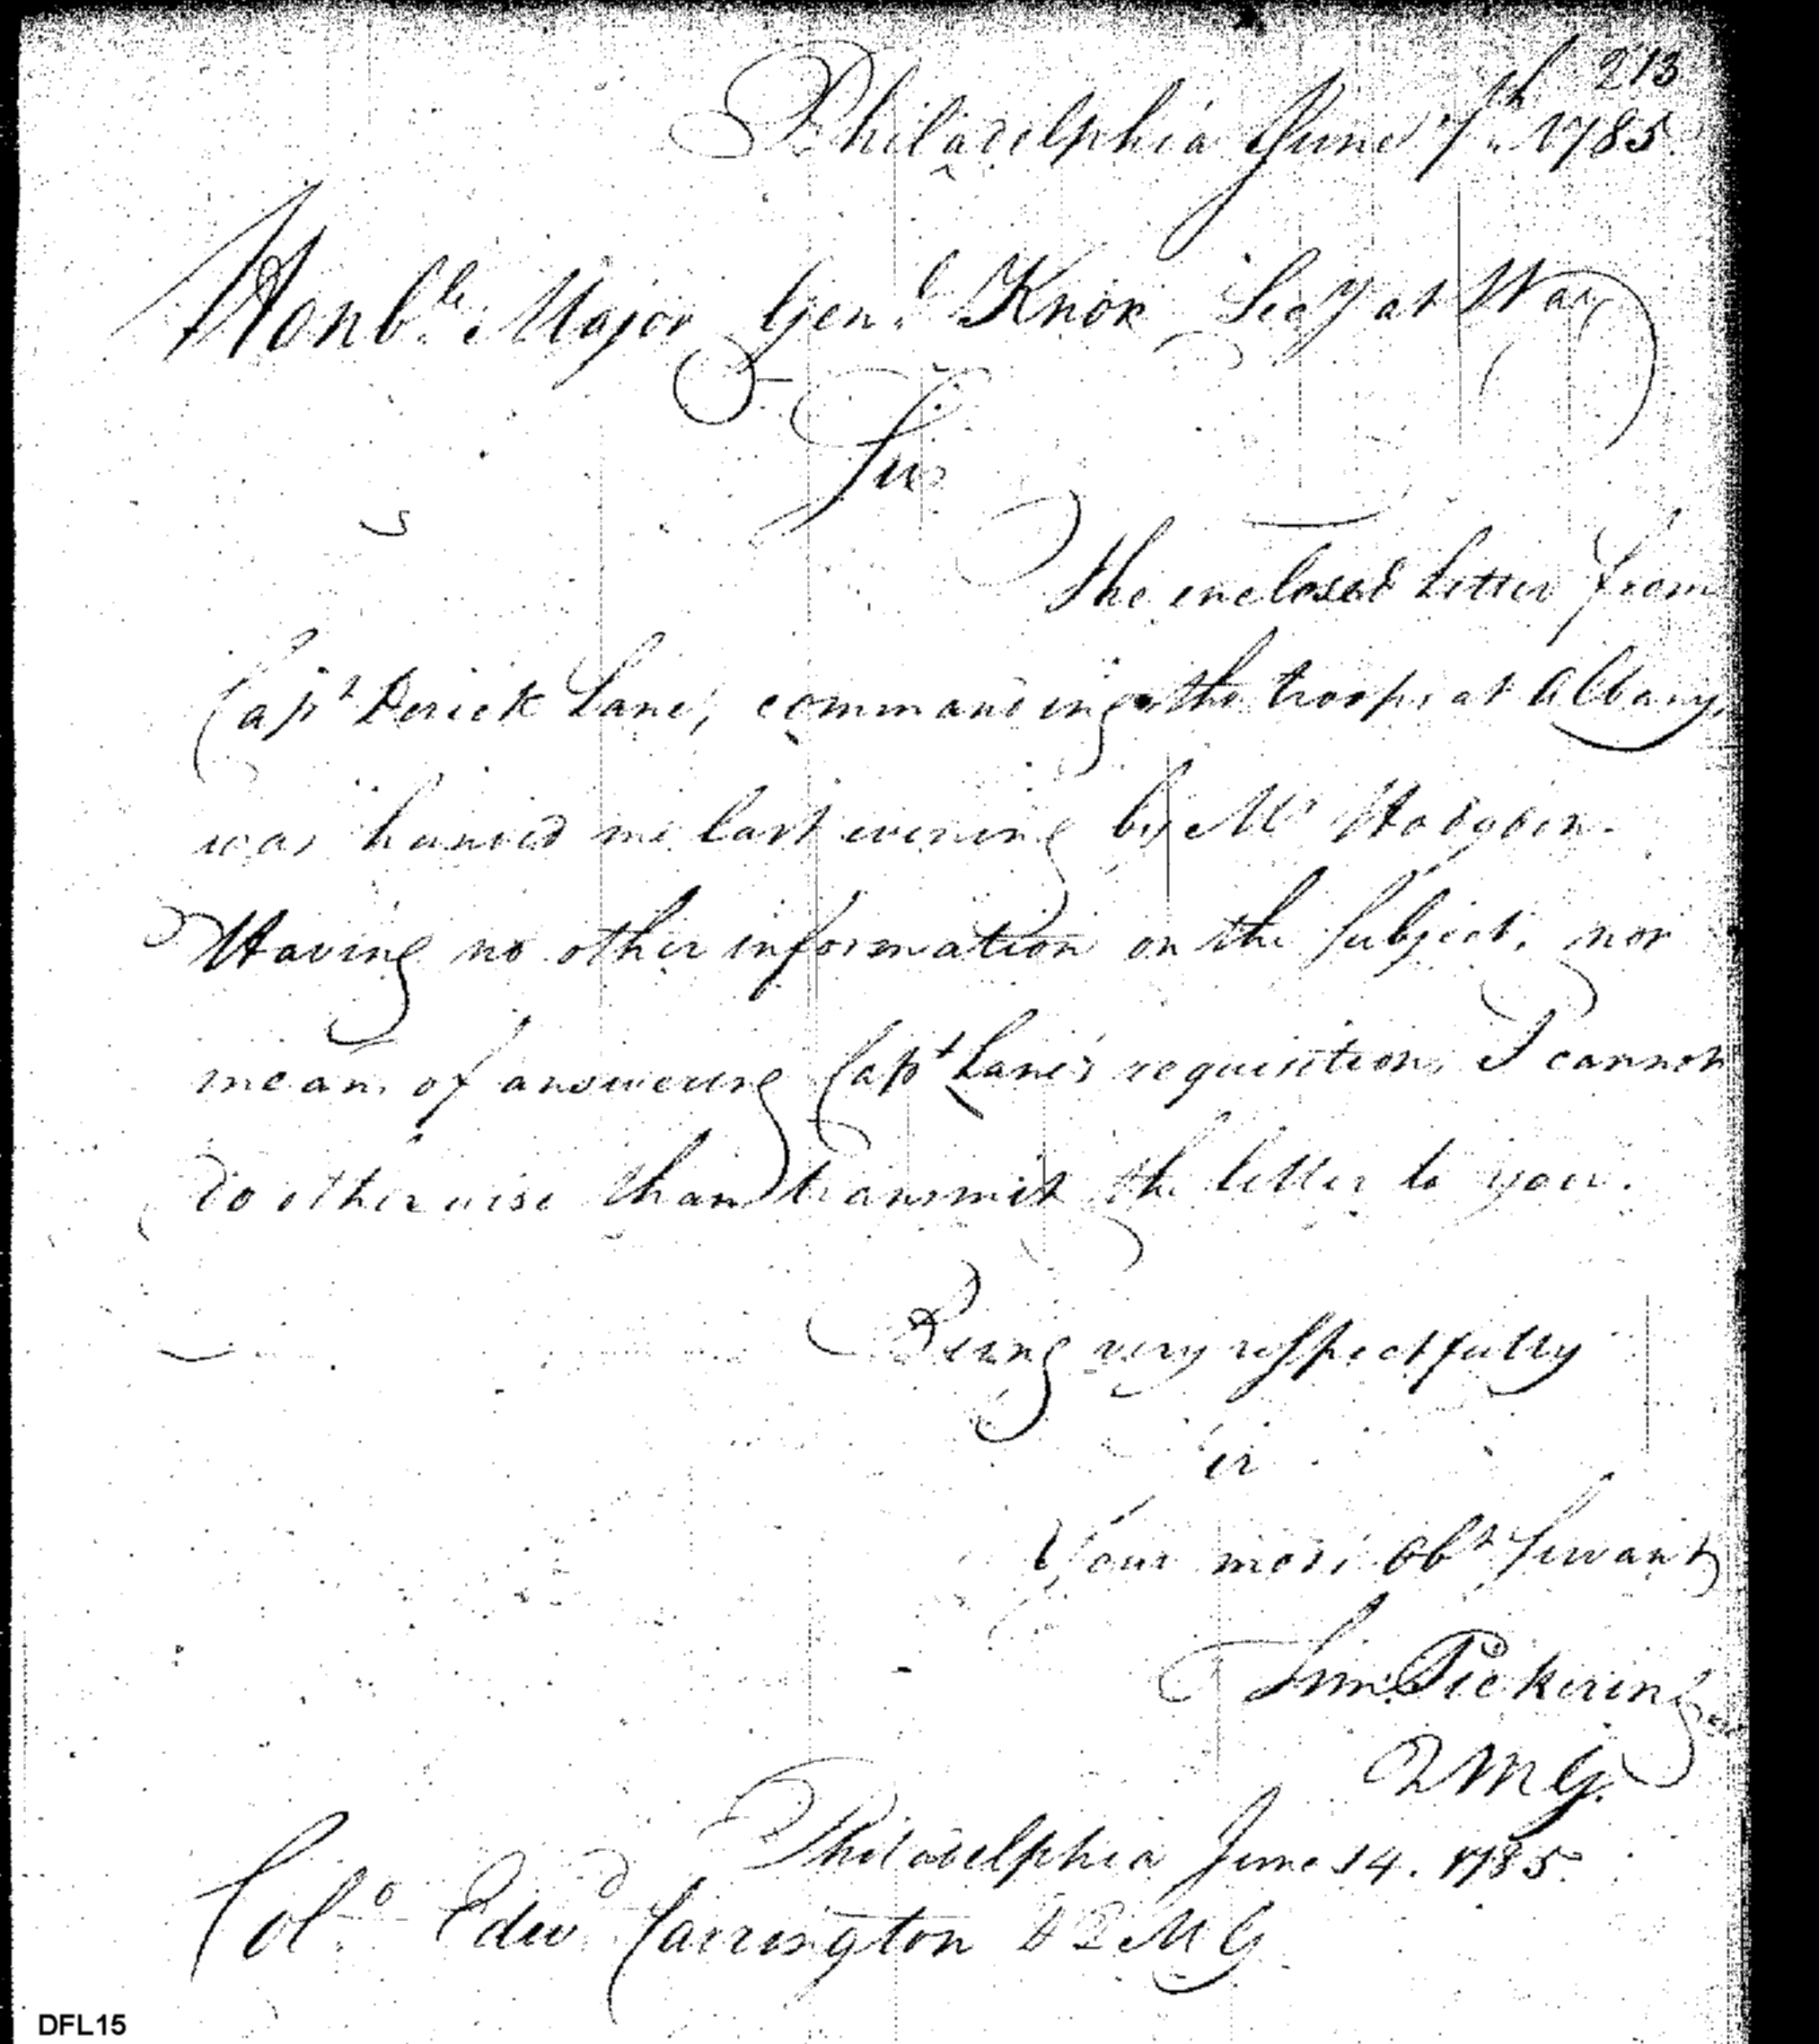 213
Philadelphia June 7th 1785.
Honble Major Genl Knox Secy at War
Sir
The enclosed letter from
Capt Derick Lane, commanding the troops at Albany,
was handed me last evening by Mr Hodgdon.
Having no other information on the subject, nor
means of answering Capt Lane's requisition, I cannot
do otherwise than transmit the letter to you.
Being very respectfully
Sir
Your most obt servant
Tim. Pickering
QMG.
Philadelphia June 14. 1785.
Colo Edwd Carrington DQMG
DFL15